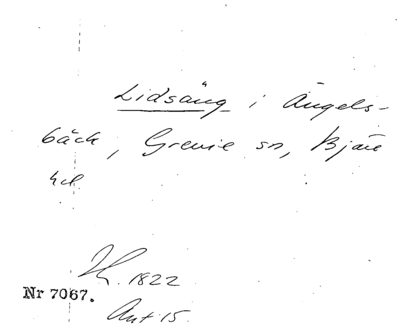 Lidsäng i Ängels-
bäck, Grevie sn, Bjäre
hd
1822
Nr 7067.
Ant 15